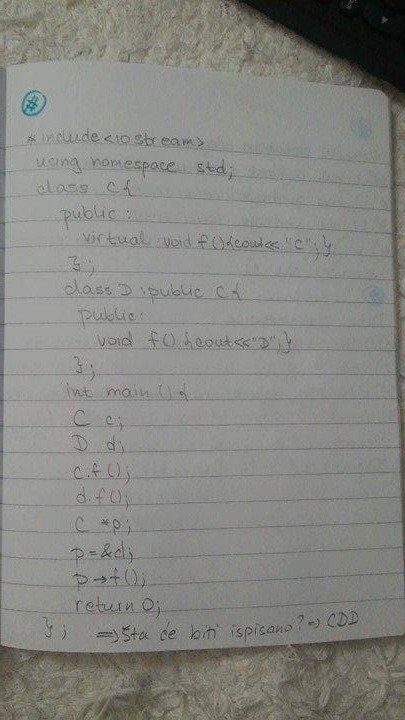 #
* include <iostream>
using namespace std;
class C {
public :
virtual void f () {cout<< "C";}
};
class D : public C {
public:
void f() {cout<<"D";}
};
int main () {
C c;
D d;
c.f ();
d.f();
C *p;
p=&d;
p→f();
return 0;
}; => Šta će biti ispisano? => CDD